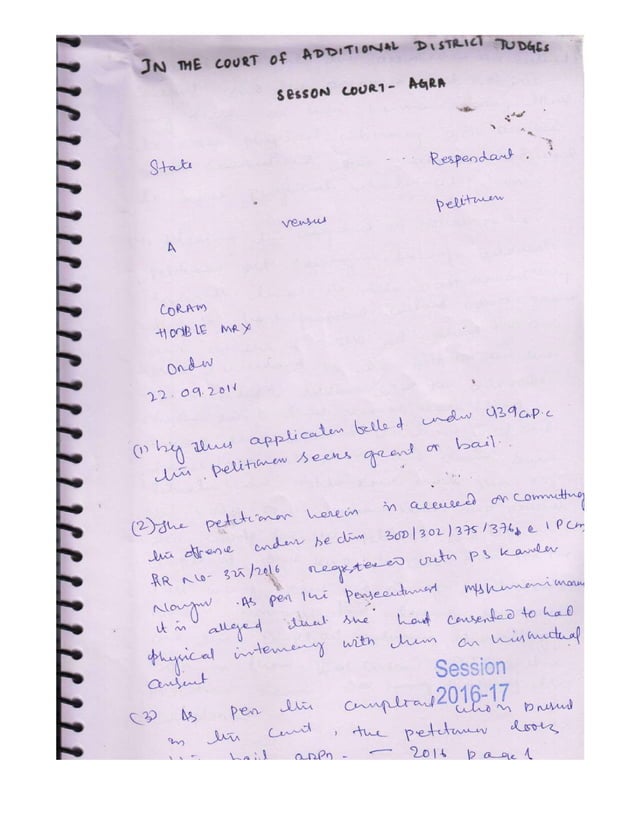 IN THE COURT OF ADDITIONAL DISTRICT JUDGES
SESSON COURT - AGRA
State Respendant.
versus Petitioner
A
CORAM
HON'BLE MR X
Order
22.09.2016
(1) by this application under 439 Crp.c
petitioner seeks grant of bail.
(2) The petitioner herein is accused of committing
offense under section 300/302/375/376 IPC
NO- 325/2016 registered with PS
As per the
it is alleged that she had consented to had
physical with them on
consent
Session
2016-17
(3) As per complaint who is present
in court, the petitioner
bail appn. — 2016 page 1